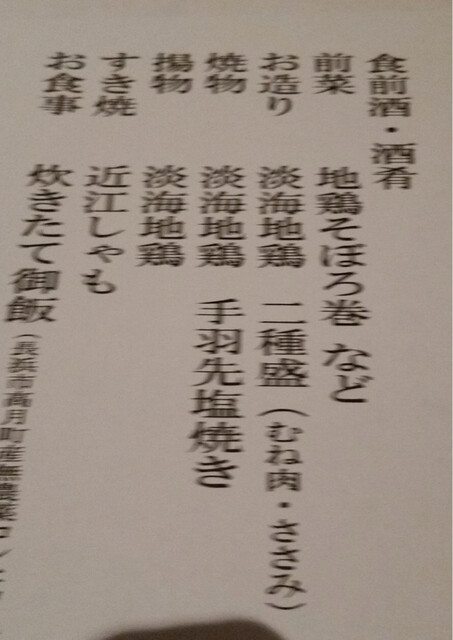 食前酒・酒肴
前菜 地鶏そぼろ巻 など
お造り 淡海地鶏 二種盛（むね肉・ささみ）
焼物 淡海地鶏 手羽先塩焼き
揚物 淡海地鶏
すき焼 近江しゃも
お食事 炊きたて御飯（長浜市高月町産無農薬コシ